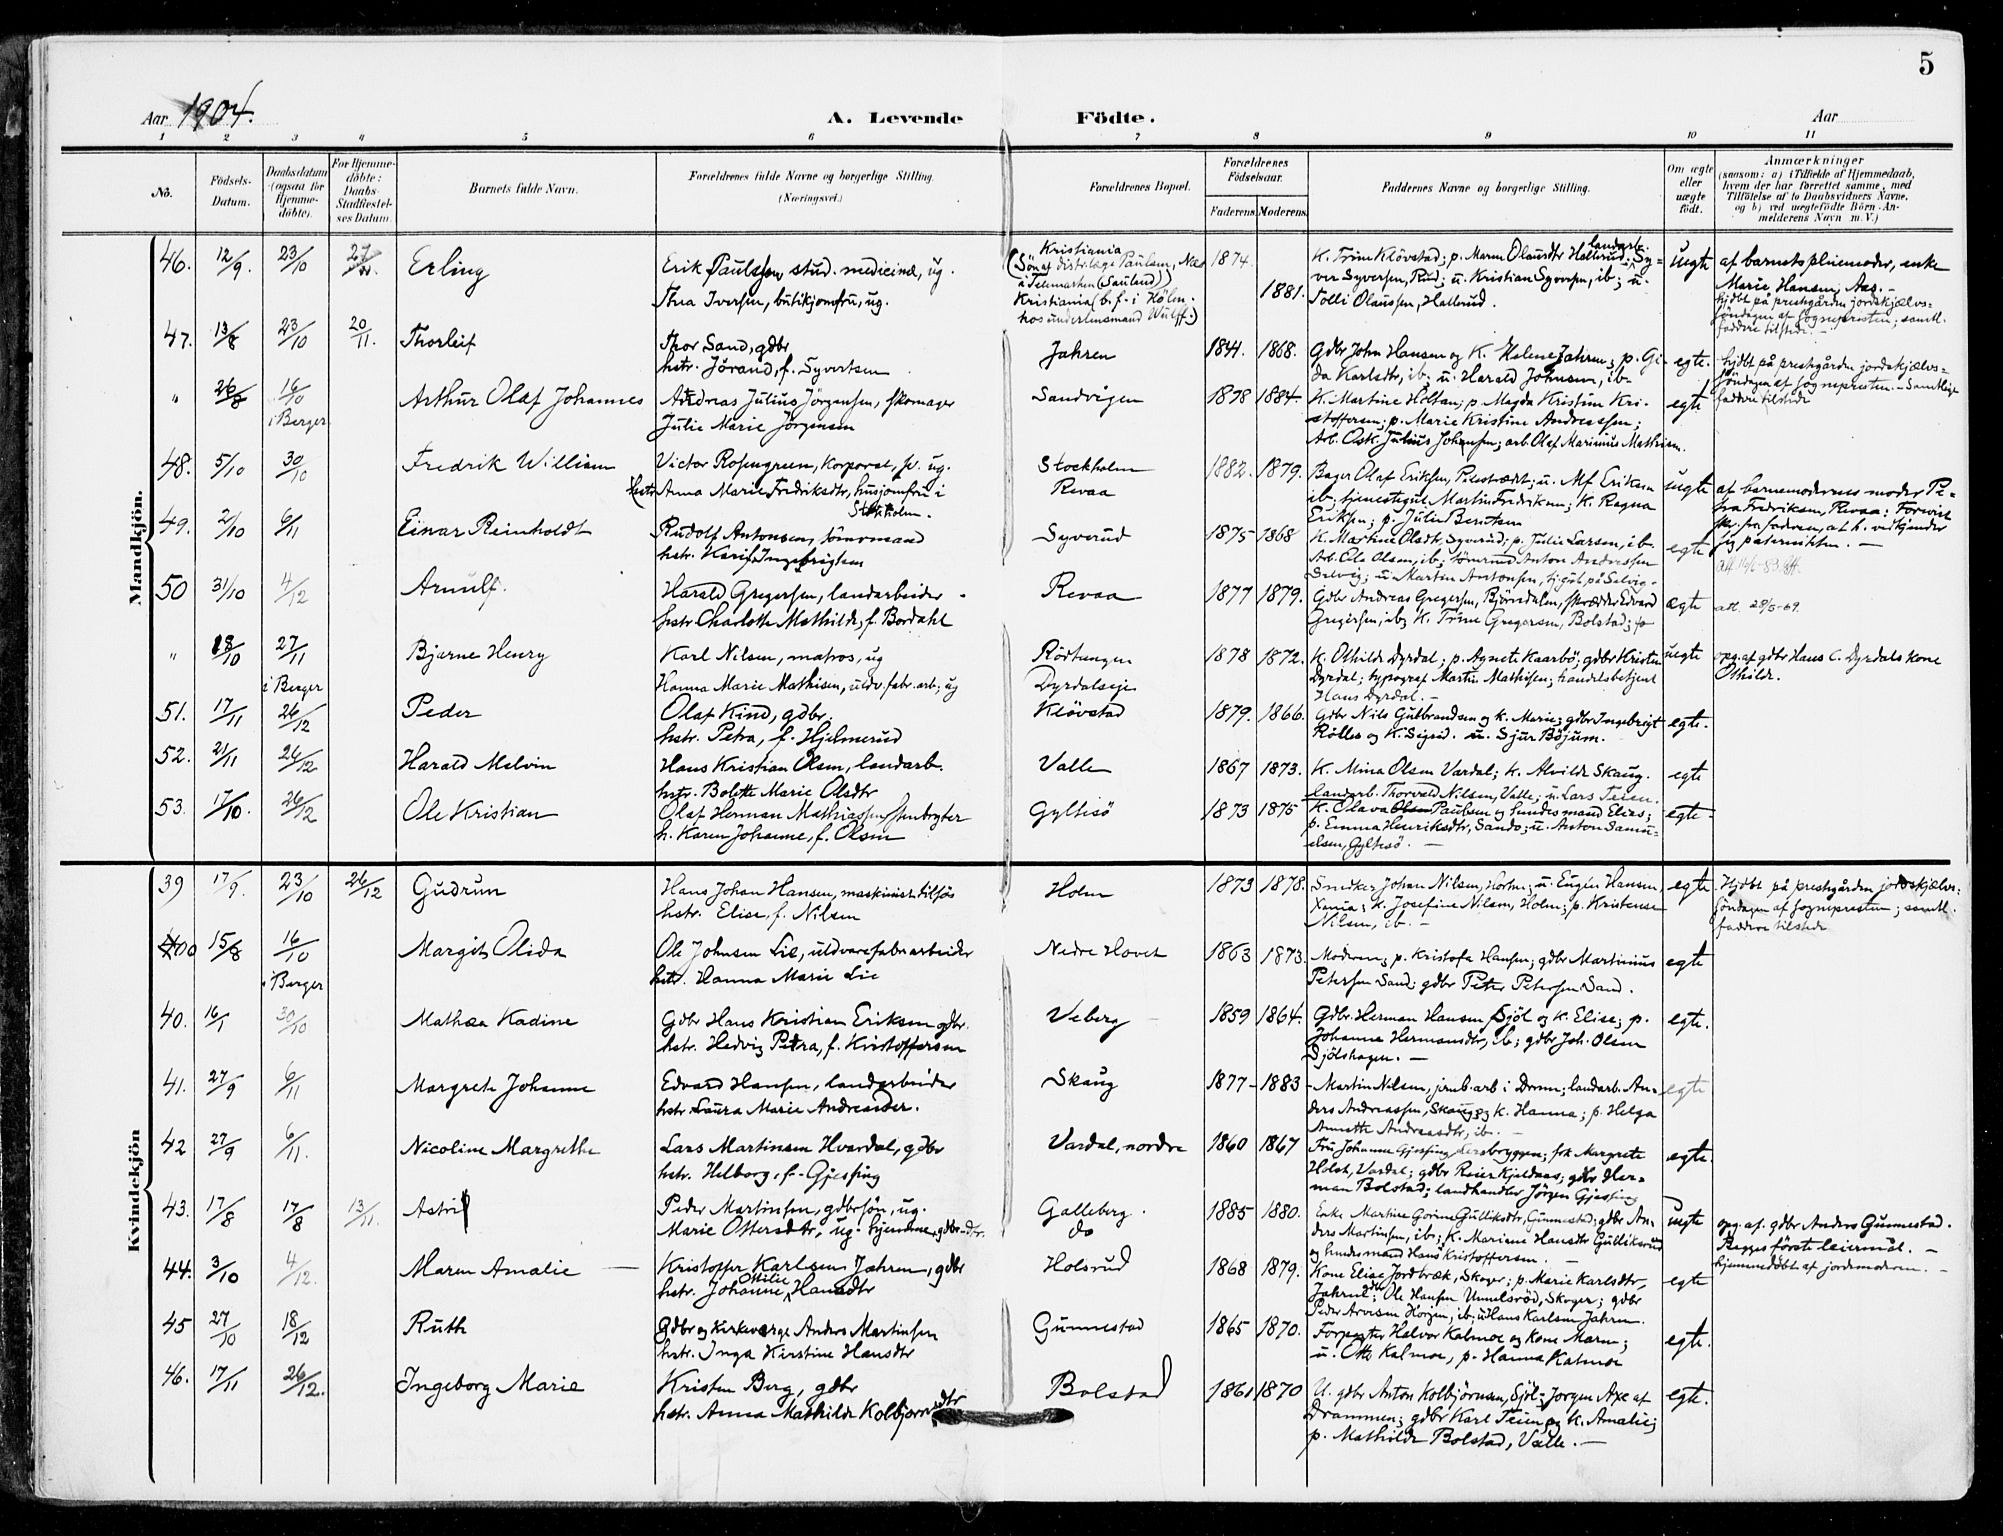 5
Aar 1904.
A. Levende Födte.
Aar
1 2 3 4 5 6 7 8 9 10 11
No.
Födsels-Datum.
Daabsdatum (ogsaa for Hjemme-döbte).
For Hjemme-döbte: Daabs-Stadfæstel-ses Datum.
Barnets fulde Navn.
Forældrenes fulde Navne og borgerlige Stilling.
(Næringsvei.)
Forældrenes Bopæl.
Forældrenes Födselsaar.
Faderens. Moderens.
Faddernes Navne og borgerlige Stilling.
Om ægte eller uægte født.
Anmærkninger
(saasom: a) i Tilfælde af Hjemmedaab,
hvem der har forrettet samme, med
Tilföielse af to Daabsvidners Navne,
og b) ved uægtefödte Börn-An-
melderens Navn m. V.)
Mandkjön.
46. 12/9 23/10 27/11. Erling
Erik Paulssen, stud. medicinæ, ug.
Thea Iversen, butikjomfru, ug.
Kristiania
(Søn af distr.læge Paulsen,
i Telemarken (Sauland))
Kristiania (b. f. i Hölen
hos underlensmand Wulff.)
1874. 1881.
K. Trine Klövstad; p. Maren Olausdtr Hallerud; landarb. Sy-
ver Syversen, Rud; u. Kristian Syversen, ib; u.
Tolli Olaussen, Hallerud.
uegte
af barnets pleiemoder, enke
Marie Hansen, Aas. —
hjdbt på prestgården jordskjælvs-
söndagen af sognepresten; samtl.
faddere tilstede. —
47. 13/8 23/10 20/11. Thorleif
Thor Sand, gdbr
hstr. Jörand, f. Syvertsen
Jahren
1844. 1868.
Gdbr John Hansen og K. Helene Jahren; p. Gi-
da Karlsdtr, ib. u. Harald Johnsen, ib.
egte.
hjdbt på prestgården jordskjælvs-
söndagen af sognepresten. — Samtlige
faddere tilstede
" 26/8 16/10 i Berger
Arthur Olaf Johannes
Andreas Julius Jörgensen, skomager
Julie Marie Jörgensen
Sandvigen
1878 1884.
K. Martine Holtan; p. Magda Kristine Kri-
stoffersen; p. Marie Kristine Andreassen;
Arb. Osk. Julius Johansen; arb. Olaf Marinius Mathisen.
egte
48. 5/10 30/10 Fredrik William
Victor Rosengreen, korporal, p. ug.
Anna Marie Fredriksdtr, husjomfru i
Stockholm.
Stockholm
Revaa
1882. 1879.
Bager Olaf Eriksen, u. Alf Eriksen
ib; tjenestegut Martin Fredriksen; K. Ragna
Eriksen; p. Julie Berntsen
uegte
af barnemoderens moder Pe-
tra Fredriksen, Revaa: Forevist
skr. fra faderen, at h. vedkjender
sig paterniteten. —
49. 2/10 6/11 Einar Reinholdt
Rudolf Antonsen, tömmermand
hstr. Karin Ingebrigtsen
Syverud
1875 1868
K. Martine Olsdtr, Syverud; p. Julie Larsen, ib.
Arb. Ole Olsen, ib; tömrmd Anton Andreassen
Selvig; u. Martin Antonsen, tj.gut, på Selvig.
egte
50 31/10 4/12 Arnulf.
Harald Gregersen, landarbeider
hstr Charlotte Mathilde, f. Bordahl
Revaa
1877 1879.
Gdbr Andreas Gregersen, Björndalen, skrædder Edvard
Gregersen, ib; K. Trine Gregersen, Bolstad;
ægte
att. 28/5-69.
" 18/10 27/11 i Berger
Bjarne Henry
Karl Nilsen, matros, ug
Hanna Marie Mathisen, uldv.fabr.arb; ug
Rödtangen
Dyrdalseje
1878 1872.
K. Othilde Dyrdal; p. Agnete Kaarbö; gdbr Kristen
Dyrdal; typograf Martin Mathisen; handelsbetjent
Hans Dyrdal. —
uegte
opg. af gdbr Hans C. Dyrdals kone
Othilde.
51. 17/11 26/12 Peder
Olaf Kind, gdbr.
hstr. Petra, f. Hjelmerud
Klövstad
1879. 1866.
Gdbr Nils Gulbrandsen og K. Marie; gdbr Ingebrigt
Rölles og K. Sigrid. u. Sjur Böjum.
egte.
52. 21/11 26/12 Harald Melvin
Hans Kristian Olsen, landarb.
hstr. Bolette Marie Olsdtr
Valle
1867 1873.
K. Mina Olsen Vardal; K. Alvilde Skaug.
landarb. Thorvald Nilsen, Valle; u. Lars Teien.
egte
53. 17/10. 26/12 Ole Kristian
Olaf Herman Mathiassen, stenbryter
h. Karen Johanne, f. Olsen
Gyltesö
1873 1875
K. Olava Paulsen og hundesmand Elias;
p. Emma Henriksdtr, Sando; u. Anton Samu-
elsen, Gyltesö. —
egte
Kvindekjön
39 17/9. 23/10 26/12 Gudrun
Hans Johan Hansen, maskinist tilsjös
hstr. Elise, f. Nilsen
Holm
1873 1878.
Snedker Johan Nilsen, Holm; u. Eugen Hansen,
Xania; K. Josefine Nilsen, Holm; p. Kristense
Nilsen, ib. —
egte
Hjdbt på prestgården jordskjælvs-
söndagen af sognepresten; samtl.
faddere tilstede
15/8 16/10 i Berger
Margit Olida
Ole Johnsen Lie, uldvarefabr.arbeider
hstr. Hanna Marie Lie
Nedre Hovet
1863 1873.
Moderen; p. Kristofa Hansen; gdbr Martinius
Petersen Sand; gdbr Peter Petersen Sand.
egte
40. 16/1 30/10 Mathea Kadine
Gdbr Hans Kristian Eriksen gdbr.
hstr. Hedvig Petra, f. Kristoffersen
Veberg
1859 1864.
Gdbr. Herman Hansen Sjöl og K. Elise; p.
Johanne Hermansdtr, ib; gdbr Joh. Olsen
Sjölshagen. —
egte.
41. 27/9 6/11 Margrete Johanne
Edvard Hansen, landarbeider
hstr. Laura Marie Andreasdtr.
Skaug
1877 1883
Martin Nilsen, jrnb.arb i Drmn; landarb. An-
ders Andreassen, Skaug og K. Hanna; p. Helga
Annette Andreasdtr, ib. —
egte
42 27/9 6/11. Nicoline Margrethe
Lars Martinsen Hvardal, gdbr
hstr. Helborg, f. Gjessing
Vardal, nordre
1860 1867
Fru Johanne Gjessing, frk Margrete
Holst, Vardal; gdbr Reier Kjeldaas; gdbr Her-
man Bolstad; landhandler Jörgen Gjessing
egte.
43. 17/8 17/8 13/11. Astrid
Peder Martinsen, gdbrsön, ug.
Marie Ottersdtr, ug. hjemme, gdbr.dtr.
Galleberg.
do
1885 1880.
Enke Martine Gorine Gulliksdtr, Gunnestad; gdbr An-
ders Martinsen, ib; K. Mariane Hansdtr Gulliksrud
og hundesmand Hans Kristoffersen. —
uegte
opg. af. gdbr Anders Gunnestad.
Begges förste leiermål. —
hjemmedöbt af jordemoderen. —
44. 3/10 4/12. Maren Amalie
Kristoffer Karlsen Jahren, gdbr
hstr. Johanne Ottilie Hansdtr
Holsrud
1868 1879.
Kone Elise Jordbræk, Skoger; p. Marie Karlsdtr,
Jahren; gdbr Ole Hansen Unnelsröd, Skoger; gdbr
Peder Arvesen Horgen, ib; u. Hans Karlsen Jahren.
egte
45 27/10 18/12 Ruth
Gdbr og kirkeverge Anders Martinsen
hstr. Inga Kirstine Hansdtr
Gunnestad
1865 1870.
Forpagter Halvor Kalmoe og kone Maren;
u. Otto Kalmoe, p. Hanna Kalmoe
egte.
46. 17/11 26/12. Ingeborg Marie
Kristen Berg, gdbr
hstr. Anna Mathilde Kolbjørnsdtr
Bolstad
1861 1870
U. gdbr Anton Kolbjörnsen, Sjöl; Jorgen Axe af
Drammen; gdbr Karl Teien og K. Amalie;
p. Mathilde Bolstad, Valle. —
egte.